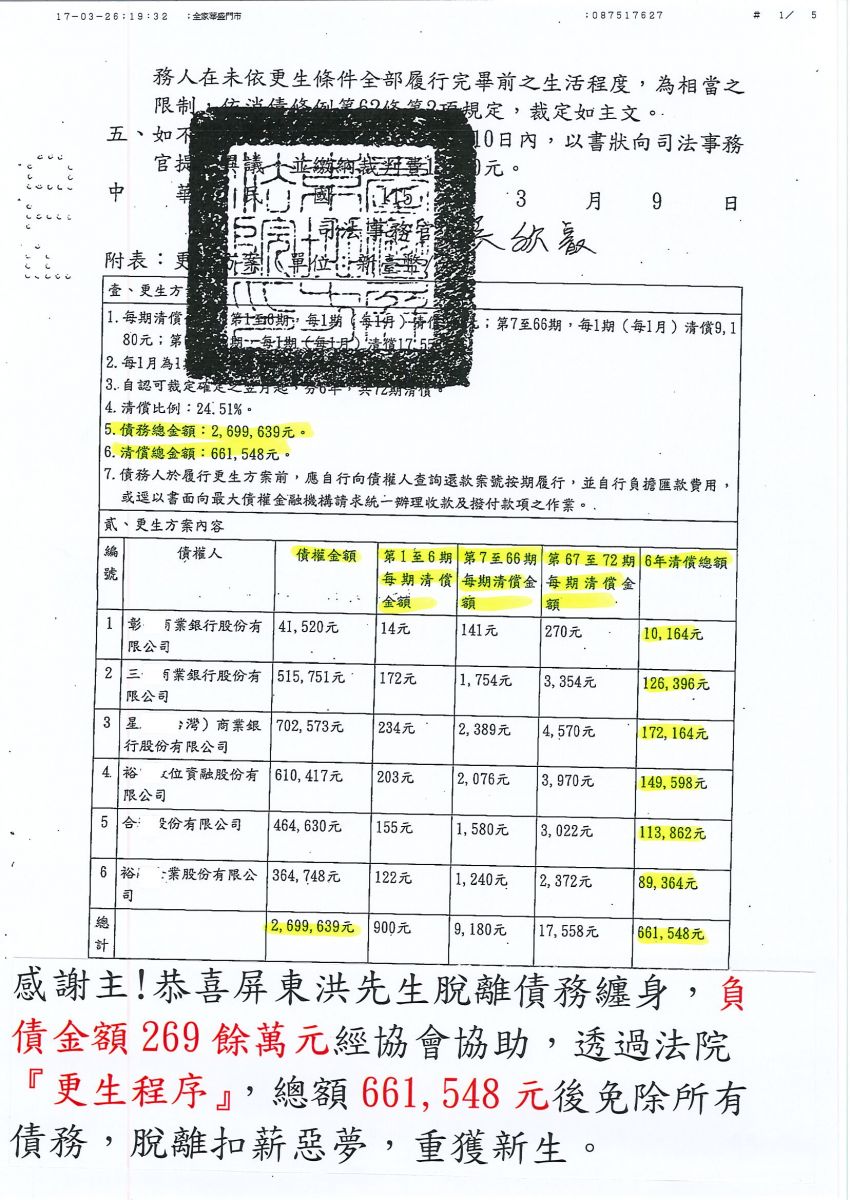 17-03-26;19:32 ;全家華盛門市 ;087517627 # 1/ 5
務人在未依更生條件全部履行完畢前之生活程度，為相當之
限制，依消債條例第62條第2項規定，裁定如主文。
五、如不 10日內，以書狀向司法事務
官提 異議，並繳納裁判費 元。
中 華 民 國 115 3 月 9 日
司法事務官
附表：更 單位：新臺幣
壹、更生方
1.每期清償 第1至6期，每1期（每1月）清償 元；第7至66期，每1期（每1月）清償9,1
80元；第 期，每1期（每1月）清償17,55
2.每1月為1
3.自認可裁定確定之翌月起，分6年，共72期清償。
4.清償比例：24.51%。
5.債務總金額：2,699,639元。
6.清償總金額：661,548元。
7.債務人於履行更生方案前，應自行向債權人查詢還款案號按期履行，並自行負擔匯款費用，
或逕以書面向最大債權金融機構請求統一辦理收款及撥付款項之作業。
貳、更生方案內容
編號 債權人 債權金額 第1至6期每期清償金額 第7至66期每期清償金額 第67至72期每期清償金額 6年清償總額
1 彰 商業銀行股份有限公司 41,520元 14元 141元 270元 10,164元
2 三 商業銀行股份有限公司 515,751元 172元 1,754元 3,354元 126,396元
3 星 灣）商業銀行股份有限公司 702,573元 234元 2,389元 4,570元 172,164元
4 裕 位資融股份有限公司 610,417元 203元 2,076元 3,970元 149,598元
5 合 股份有限公司 464,630元 155元 1,580元 3,022元 113,862元
6 裕 業股份有限公司 364,748元 122元 1,240元 2,372元 89,364元
總計 2,699,639元 900元 9,180元 17,558元 661,548元
感謝主!恭喜屏東洪先生脫離債務纏身，負
債金額269餘萬元經協會協助，透過法院
『更生程序』，總額661,548元後免除所有
債務，脫離扣薪惡夢，重獲新生。